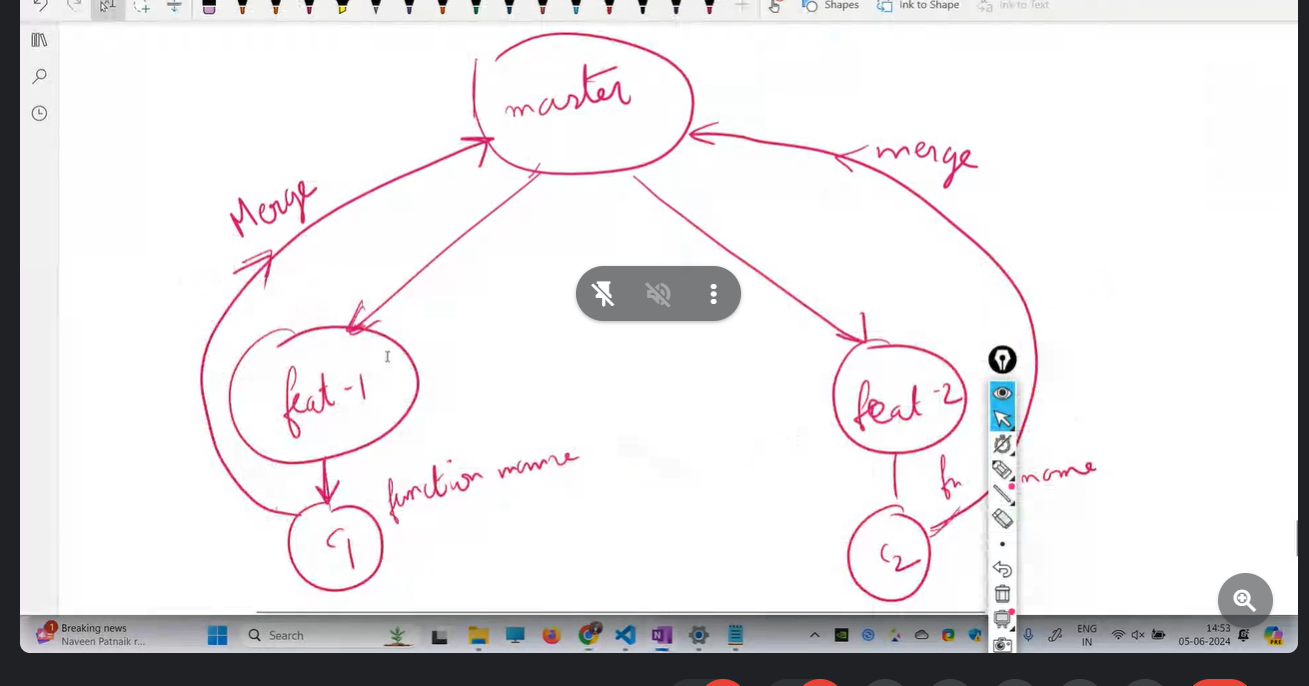 Shapes
Ink to Shape
Ink to Text
master
Merge
merge
feat-1
feat-2
function name
fn name
C1
C2
1
Breaking news
Naveen Patnaik r...
Search
ENG
IN
14:53
05-06-2024
PRE